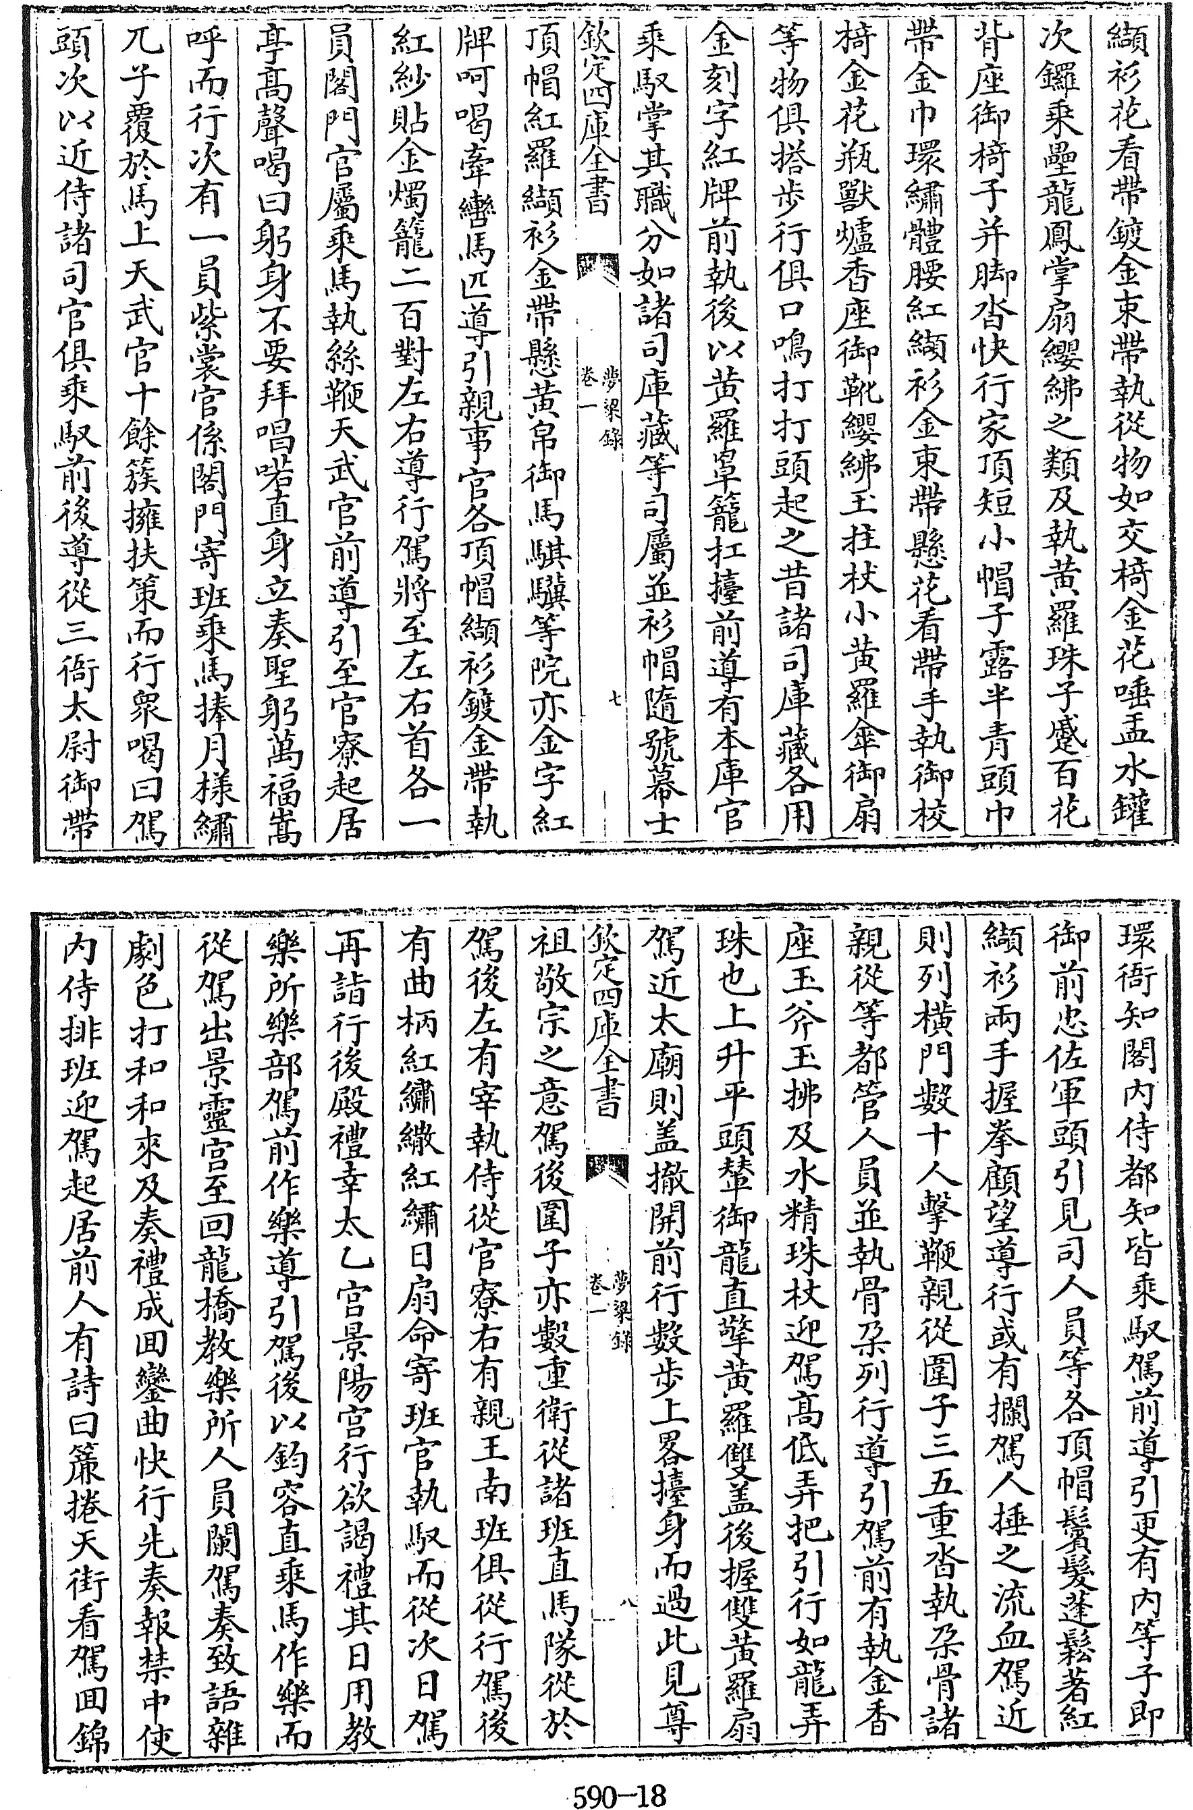 纈衫花看帶鍍金束帶執從物如交椅金花唾盂水罐
次鑼乘壘龍鳳掌扇纓紼之類及執黃羅珠子蹙百花
背座御椅子并脚沓快行家頂短小帽子露半青頭巾
帶金巾環繡體腰紅纈衫金束帶懸花看帶手執御校
椅金花瓶獸爐香座御靴纓紼玉拄杖小黃羅傘御扇
等物俱搭歩行俱口鳴打打頭起之昔諸司庫藏各用
金刻字紅牌前執後以黃羅罩籠扛擡前導有本庫官
乘馭掌其職分如諸司庫藏等司屬並衫帽隨號幕士
欽定四庫全書
夢粱錄
卷一
七
頂帽紅羅纈衫金帶懸黃帛御馬騏驥等院亦金字紅
牌呵喝牽轡馬匹導引親事官各頂帽纈衫鍍金帶執
紅紗貼金燭籠二百對左右導行駕將至左右首各一
員閣門官屬乘馬執絲鞭天武官前導引至官寮起居
亭高聲喝曰躬身不要拜唱喏直身立奏聖躬萬福嵩
呼而行次有一員紫裳官係閣門寄班乘馬捧月樣繡
兀子覆於馬上天武官十餘簇擁扶策而行衆喝曰駕
頭次以近侍諸司官俱乘馭前後導從三衙太尉御帶
環衙知閣内侍都知皆乘馭駕前導引更有内等子即
御前忠佐軍頭引見司人員等各頂帽鬢髮蓬鬆著紅
纈衫兩手握拳顧望導行或有攔駕人捶之流血駕近
則列橫門數十人擊鞭親從圍子三五重沓執朶骨諸
親從等都管人員並執骨朶列行導引駕前有執金香
座玉斧玉拂及水精珠杖迎駕高低弄把引行如龍弄
珠也上升平頭輦御龍直擎黃羅雙蓋後握雙黃羅扇
駕近太廟則盖撤開前行數歩上畧擡身而過此見尊
欽定四庫全書
夢粱錄
卷一
八
祖敬宗之意駕後圍子亦數重衛從諸班直馬隊從於
駕後左有宰執侍從官寮右有親王南班俱從行駕後
有曲柄紅繡繖紅繡日扇命寄班官執馭而從次日駕
再詣行後殿禮幸太乙宮景陽宮行欲謁禮其日用教
樂所樂部駕前作樂導引駕後以鈞容直乘馬作樂而
從駕出景靈宮至回龍橋教樂所人員闌駕奏致語雜
劇色打和和來及奏禮成回鑾曲快行先奏報禁中使
内侍排班迎駕起居前人有詩曰簾捲天街看駕回錦
590-18